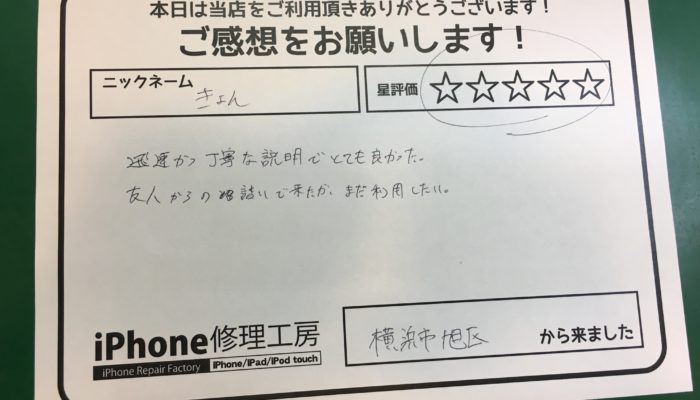 本日は当店をご利用頂きありがとうございます！
ご感想をお願いします！
ニックネーム
きょん
星評価 ☆☆☆☆☆
迅速かつ丁寧な説明でとても良かった。
友人からの紹介で来たが、また利用したい。
iPhone修理工房
iPhone Repair Factory iPhone/iPad/iPod touch
横浜市旭区 から来ました